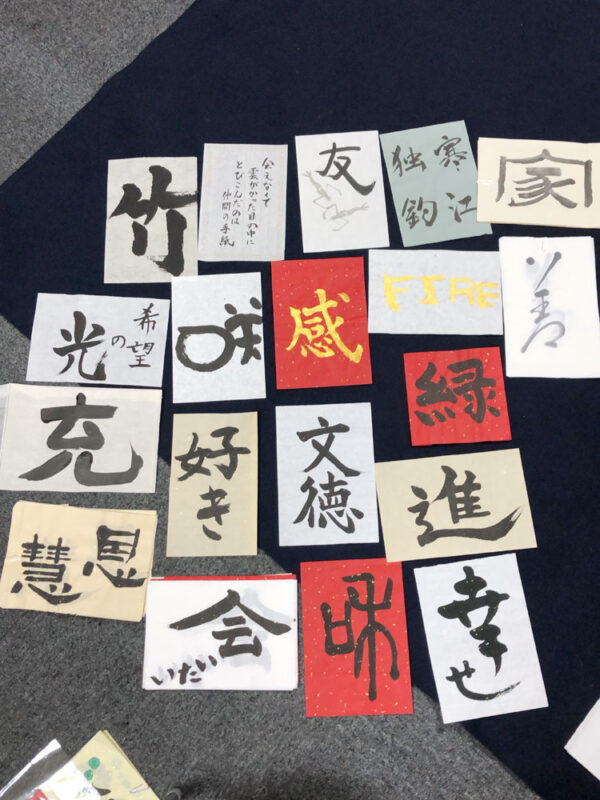 竹
会えなくて
雲がかった目の中に
とびこんだのは
仲間の手紙
友
寒江
独釣
家
希望
の
光
咲
感
FIRE
善
充
好き
文徳
緑
進
恩
慧
会
いたい
和
幸せ